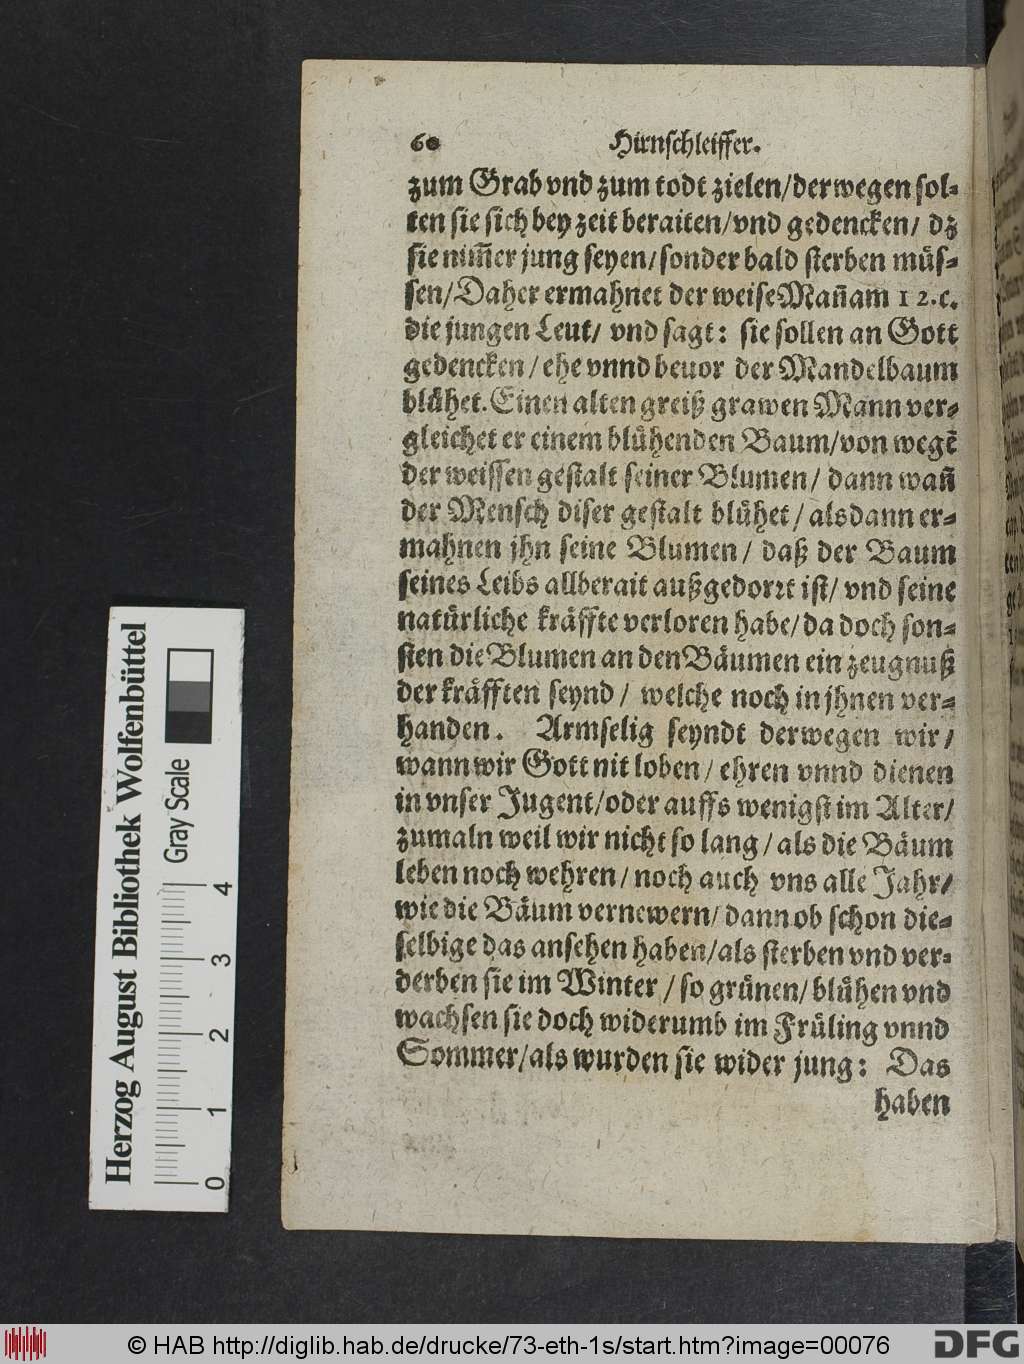 60 Hirnschleiffer.
zum Grab vnd zum todt zielen/derwegen sol-
ten sie sich bey zeit beraiten/vnd gedencken/ dz
sie nim̅er jung seyen/sonder bald sterben müs-
sen/Daher ermahnet der weise Man̅ am 12.c.
die jungen Leut/ vnd sagt: sie sollen an Gott
gedencken/ehe vnnd beuor der Mandelbaum
blühet. Einen alten greiß grawen Mann ver-
gleichet er einem blühenden Baum/von wegẽ
der weissen gestalt seiner Blumen/ dann wan̅
der Mensch diser gestalt blühet/alsdann er-
mahnen jhn seine Blumen/ daß der Baum
seines Leibs allberait außgedorrt ist/ vnd seine
natürliche kräffte verloren habe/da doch son-
sten die Blumen an den Bäumen ein zeugnuß
der kräfften seynd/ welche noch in jhnen ver-
handen. Armselig seyndt derwegen wir/
wann wir Gott nit loben/ehren vnnd dienen
in vnser Jugent/oder auffs wenigst im Alter/
zumaln weil wir nicht so lang/als die Bäum
leben noch wehren/noch auch vns alle Jahr/
wie die Bäum vernewern/dann ob schon die-
selbige das ansehen haben/als sterben vnd ver-
derben sie im Winter/so grünen/blühen vnd
wachsen sie doch widerumb im Früling vnnd
Sommer/als wurden sie wider jung: Das
haben
Herzog August Bibliothek Wolfenbüttel
Gray Scale
0 1 2 3 4
© HAB http://diglib.hab.de/drucke/73-eth-1s/start.htm?image=00076
DFG